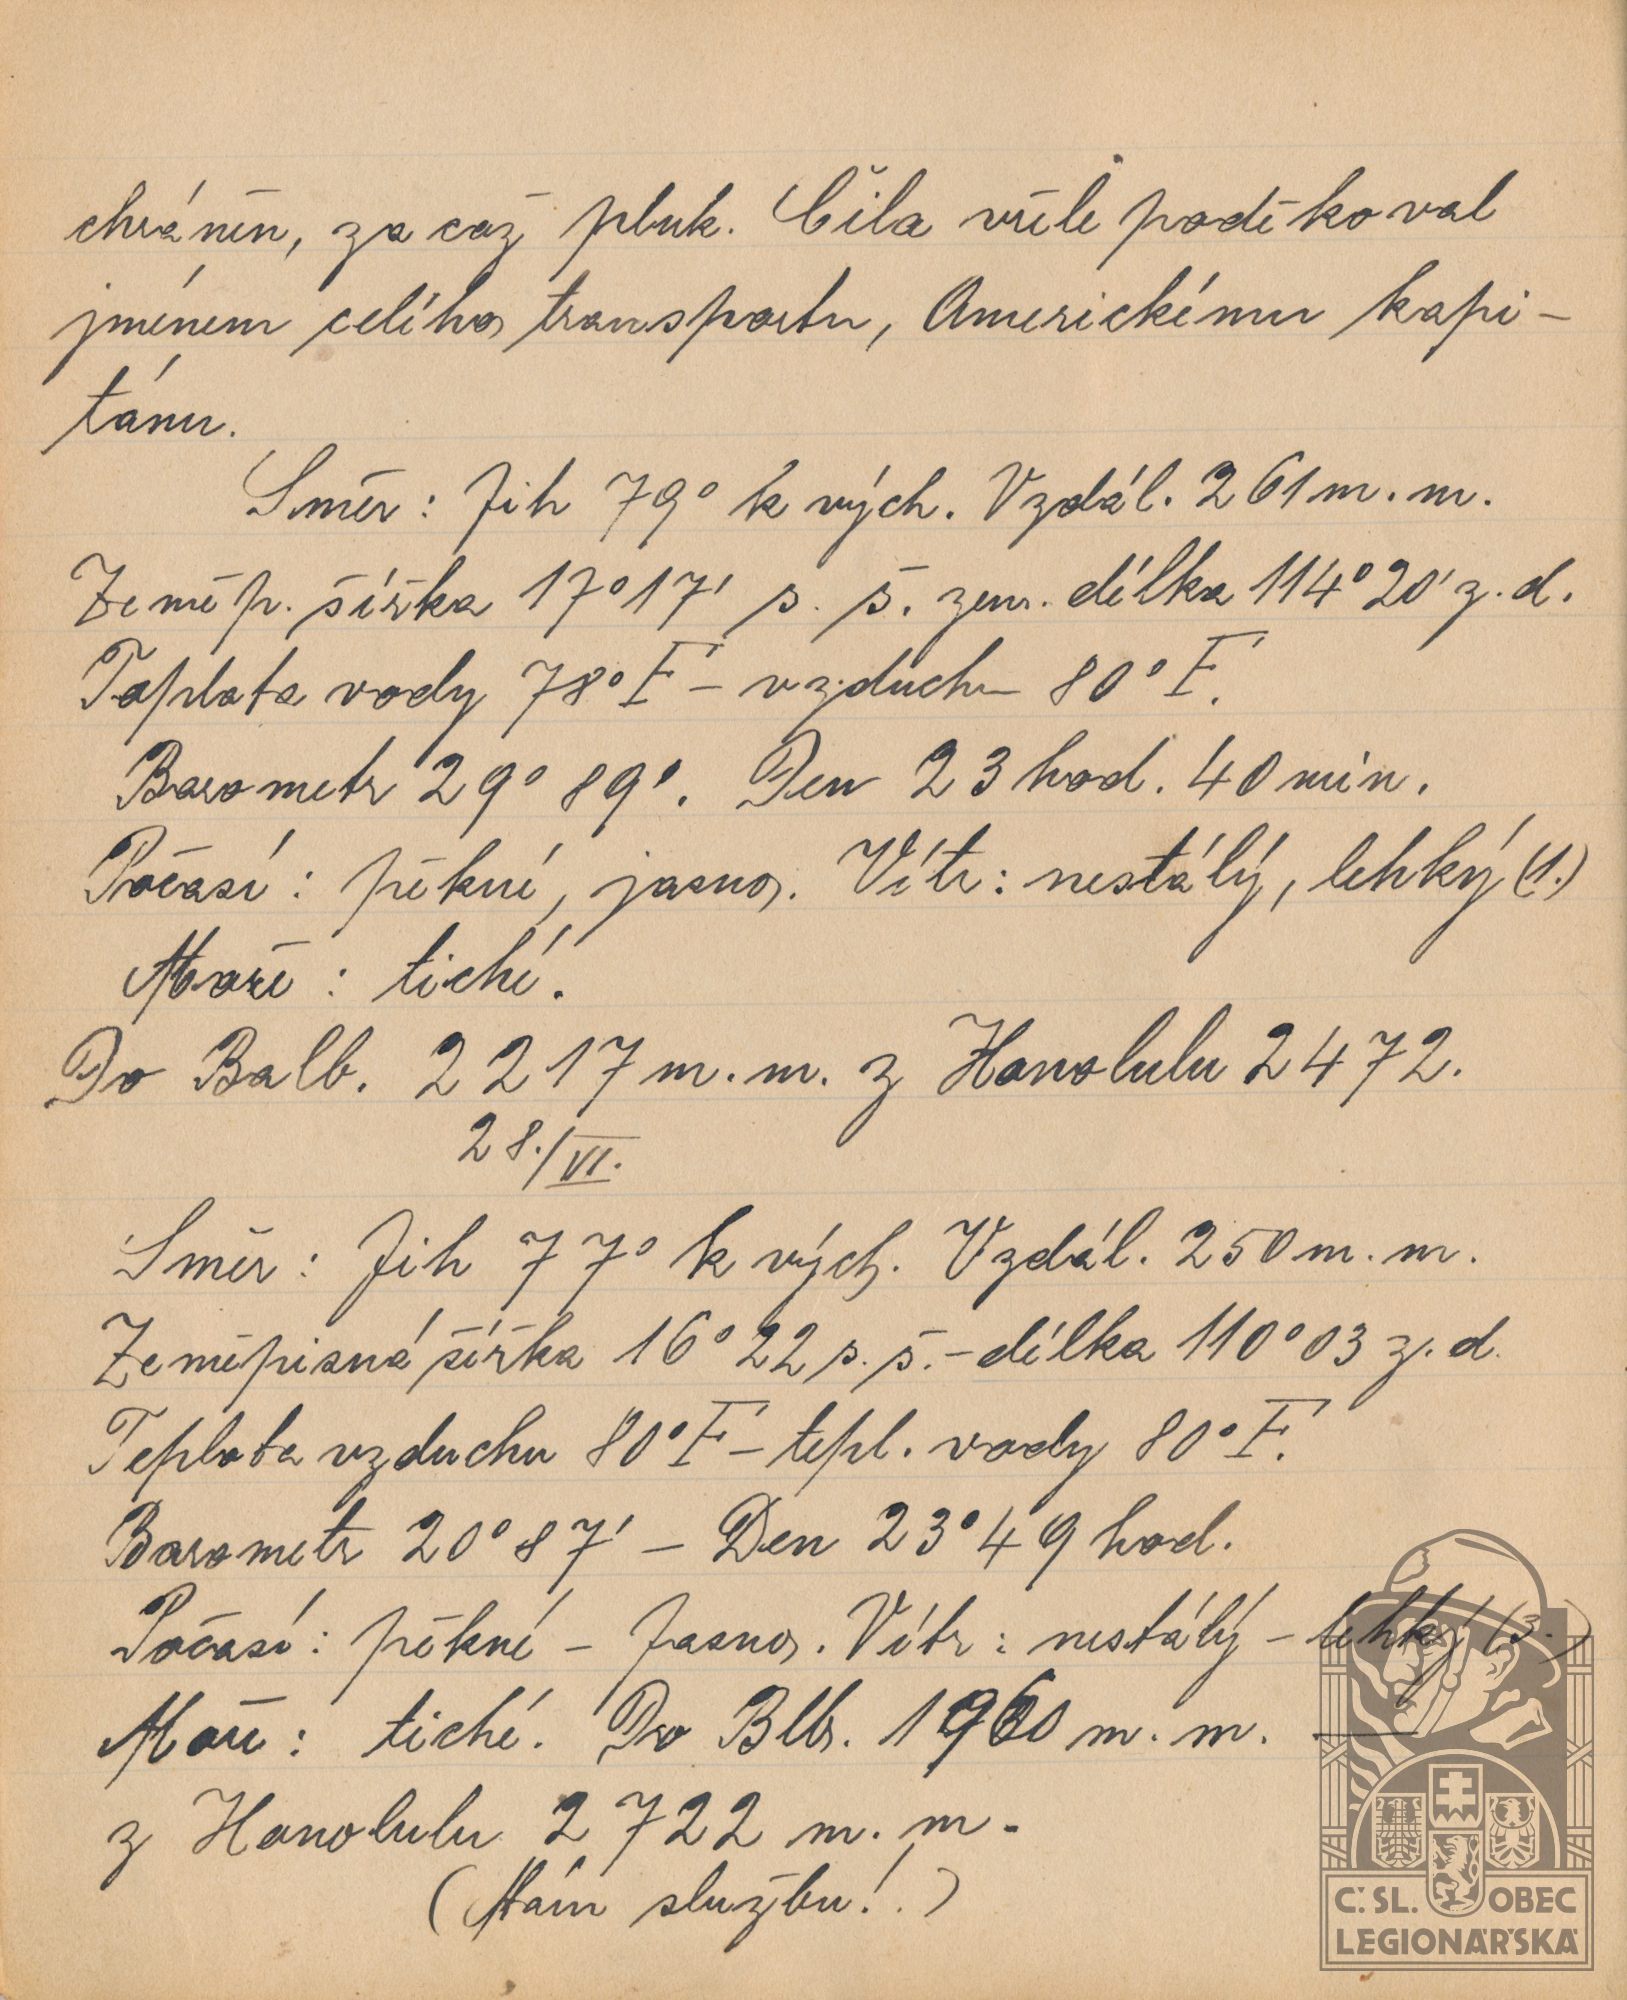 chráněn, za což pluk. Čila vřele poděkoval
jménem celého transportu, Americkému kapi-
tánu.
Směr: Jih 79° k vých. Vzdál. 261 m. m.
Zeměp. šířka 17°17' s. š. zem. délka 114°20' z. d.
Teplota vody 78°F - vzduchu 80°F.
Barometr 29° 89'. Den 23 hod. 40 min.
Počasí: pěkné, jasno. Vítr: nestálý, lehký (1.)
Moře: tiché.
Do Balb. 2217 m. m. z Honolulu 2472.
28./VI.
Směr: Jih 77° k vých. Vzdál. 250 m. m.
Zeměpisná šířka 16°22 s. š. - délka 110°03 z. d.
Teplota vzduchu 80°F - tepl. vody 80°F.
Barometr 20°87' - Den 23°49 hod.
Počasí: pěkné - Jasno. Vítr: nestálý - lehký (3.)
Moře: tiché. Do Blb. m. m.
z Honolulu 2722 m. m.
(Mám službu!.)
Č. SL. OBEC
LEGIONÁŘSKÁ